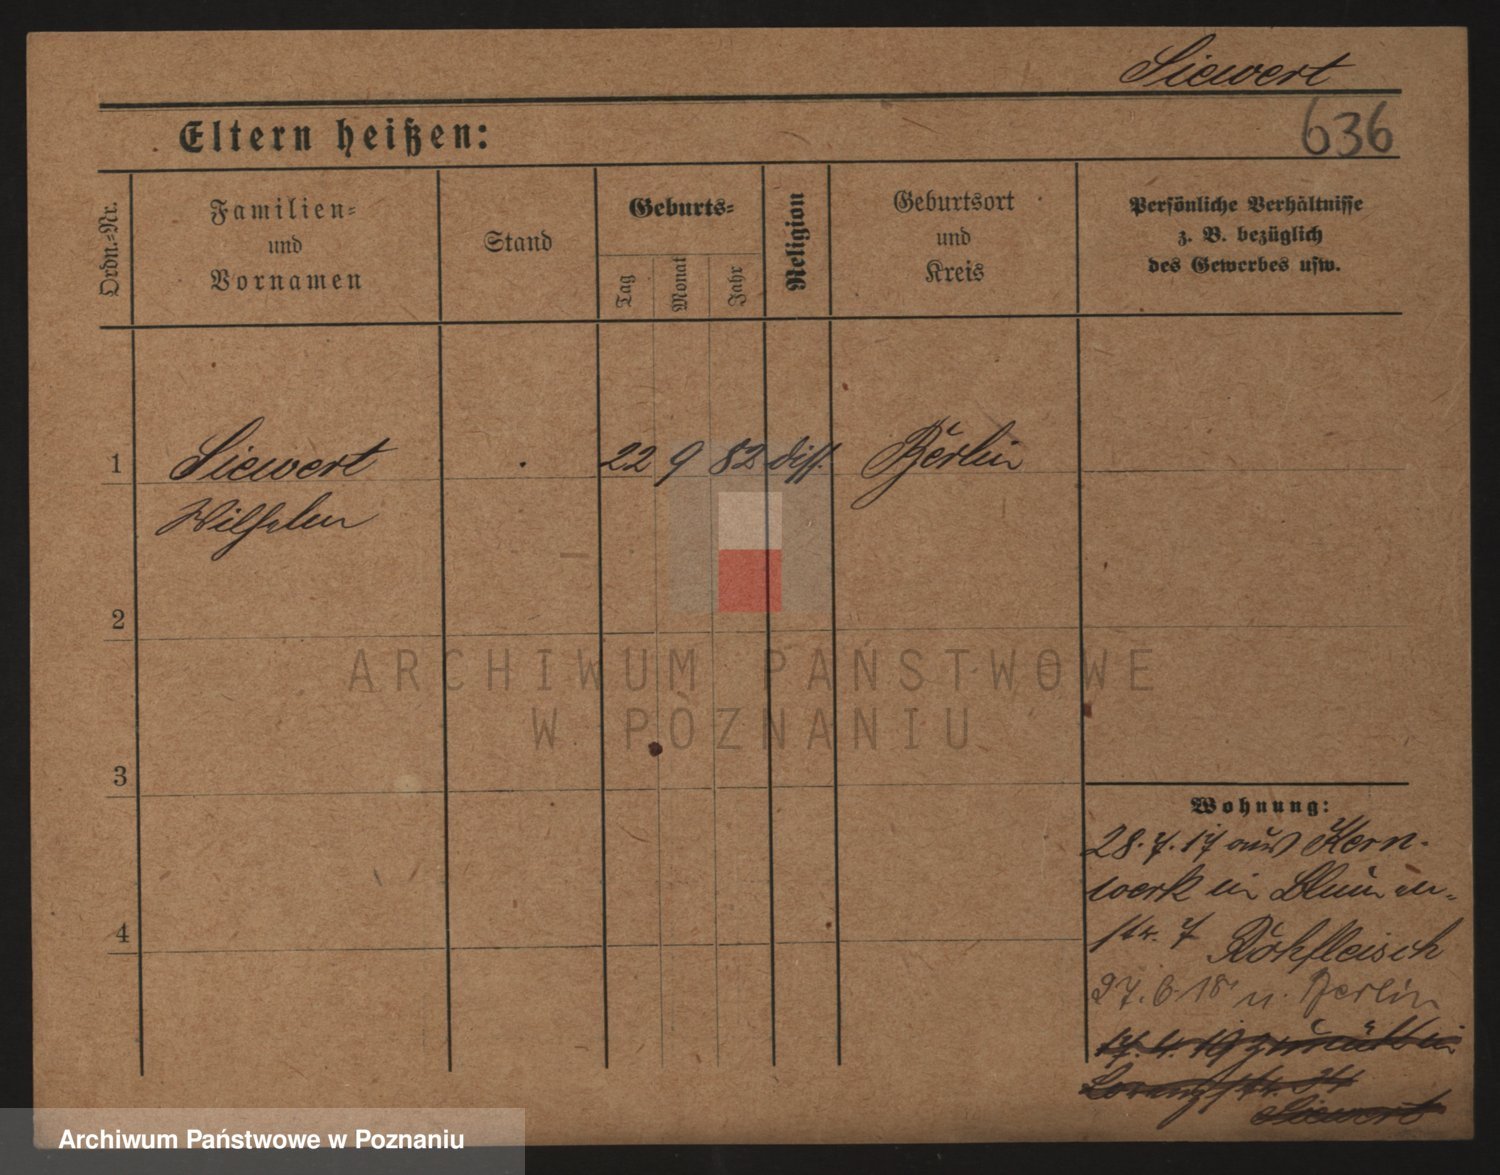 Siewert
636
Eltern heißen:
Ordn.-Nr.
Familien-
und
Vornamen
Stand
Geburts-
Tag
Monat
Jahr
Religion
Geburtsort
und
Kreis
Persönliche Verhältnisse
z. B. bezüglich
des Gewerbes usw.
1
Siewert
Wilhelm
22 9 82 diss. Berlin
2
ARCHIWUM PAŃSTWOWE
W POZNANIU
3
Wohnung:
28.7.17 aus Kern-
werk in Blumen-
str. 7 Rohfleisch
4
27.6.18 n. Berlin
17.4.19 zurück in
str. 34
Siewert
Archiwum Państwowe w Poznaniu